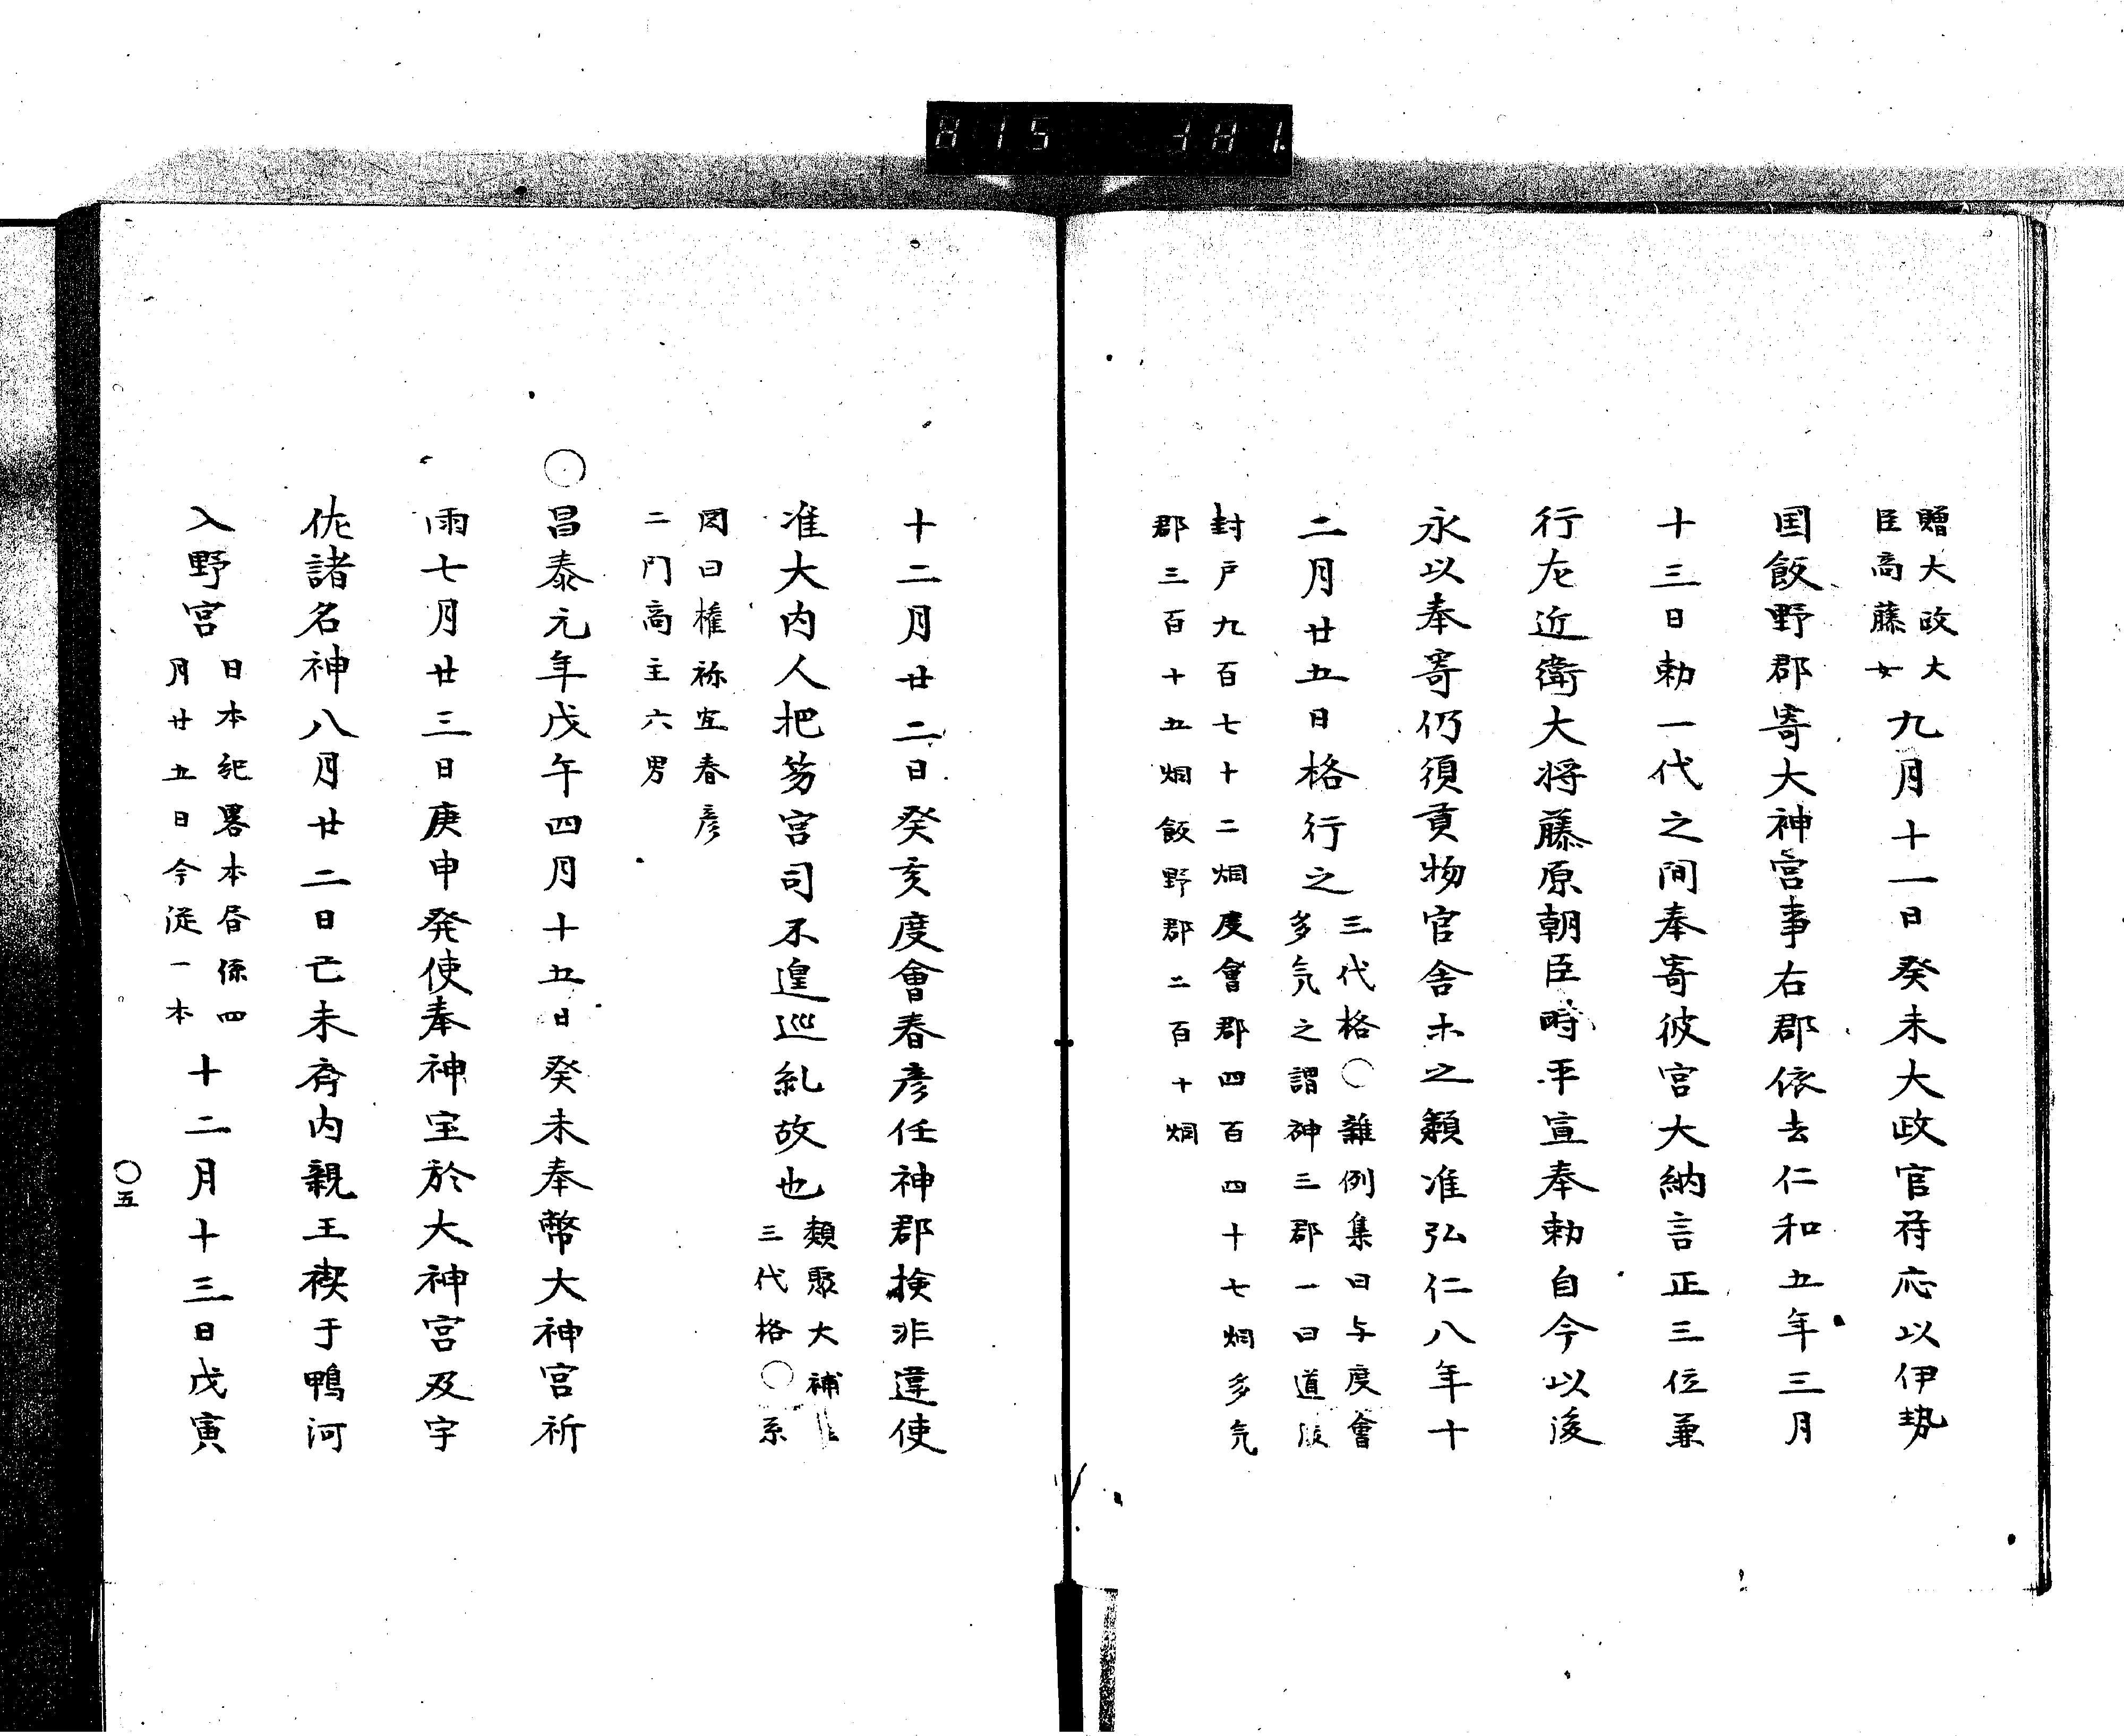 贈大政大
臣高藤女
九月十一日癸未大政官符応以伊勢
国飯野郡寄大神宮事右郡依去仁和五年三月
十三日勅一代之間奉寄彼宮大納言正三位兼
行左近衛大将藤原朝臣時平宣奉勅自今以後
永以奉寄仍須貢物官舎ホ之類准弘仁八年十
二月廿五日格行之
三代格○雑例集曰与度會
多気之謂神三郡一曰道後
封戸九百七十二烟度會郡四百四十七烟多気
郡三百十五烟飯野郡二百十烟
十二月廿二日癸亥度會春彦任神郡検非違使
准大内人把笏宮司不遑巡糺故也
類聚大補
三代格○系
図曰権祢宜春彦
二門高主六男
○昌泰元年戊午四月十五日癸未奉幣大神宮祈
雨七月廿三日庚申発使奉神宝於大神宮及宇
佐諸名神八月廿二日己未斉内親王禊于鴨河
入野宮
日本紀畧本唇係四
月廿五日今従一本
十二月十三日戊寅
○五
815 181.